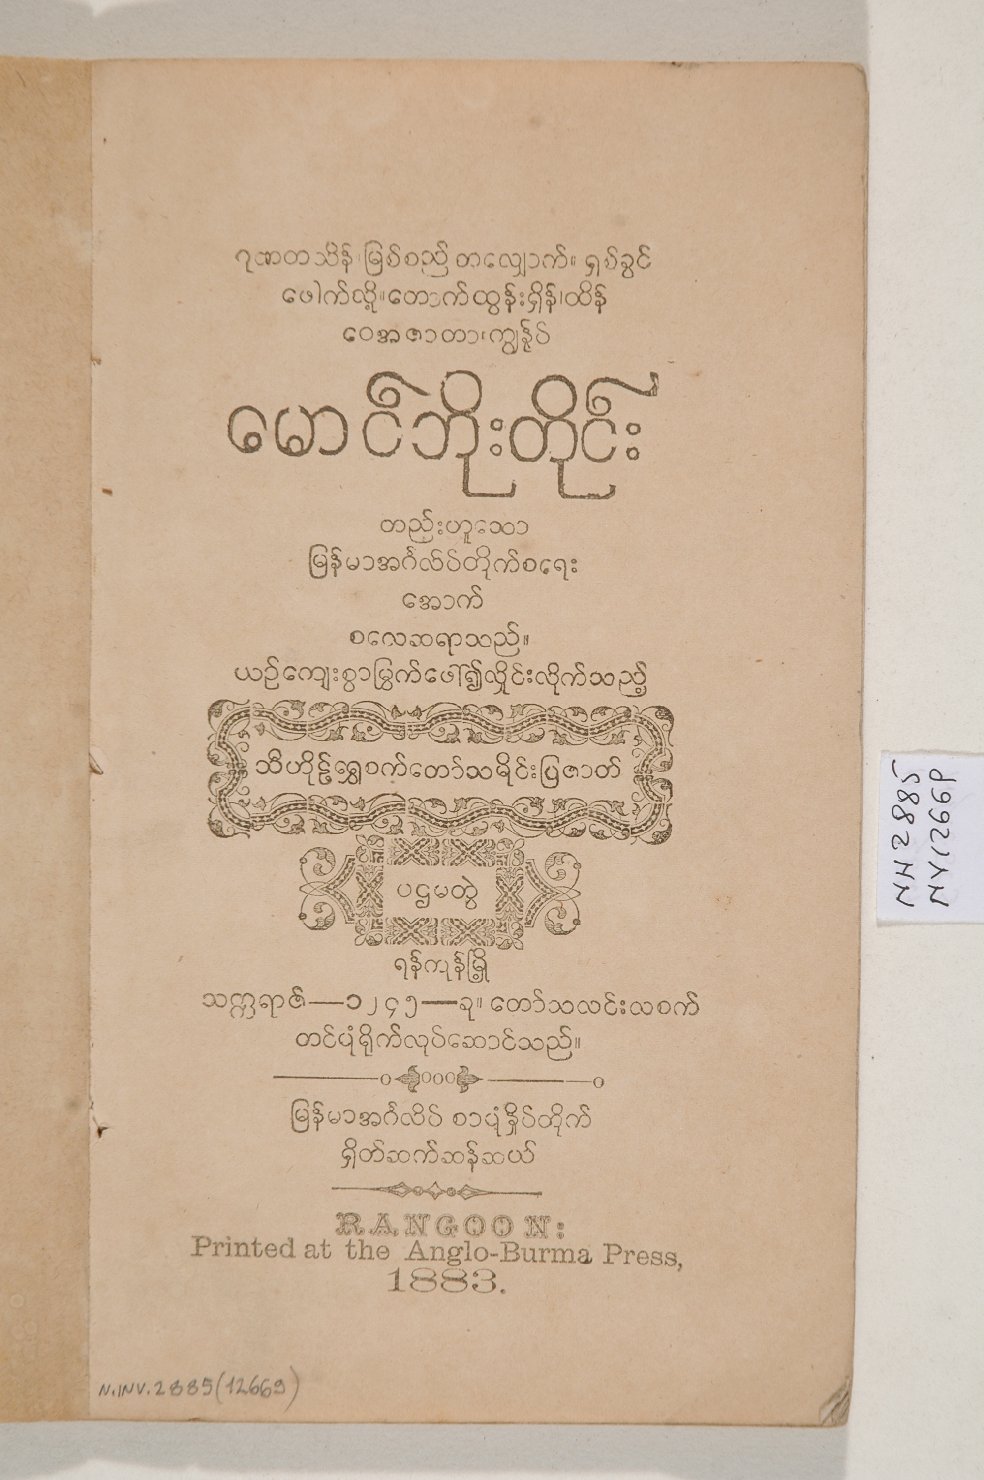 ဂုဏတသိန်၊မြစ်စည်တလျှောက်။ ရှစ်ခွင်
ဖေါက်လို့။တောက်ထွန်းရှိန်၊ထိန်
ဝေအဇာတာ၊ကျွန်ုပ်
မောင်ဘိုးတိုင်း
တည်းဟူသော
မြန်မာအင်္ဂလိပ်တိုက်စရေး
အောက်
စလေဆရာသည်။
ယဉ်ကျေးစွာမြွက်ဖေါ်၍လှိုင်းလိုက်သည့်
သီဟိုဠ်ရွှေစက်တော်သမိုင်းပြဇာတ်
ပဌမတွဲ
ရန်ကုန်မြို့
သက္ကရာဇ်—၁၂၄၅—ခု။ တော်သလင်းလစက်
တင်ပုံရိုက်လုပ်ဆောင်သည်။
မြန်မာအင်္ဂလိပ် စာပုံနှိပ်တိုက်
ရှိတ်ဆက်ဆန်ဆယ်
RANGOON:
Printed at the Anglo-Burma Press,
1883.
N.INV.2885(12669)
NH2885
NYI2669